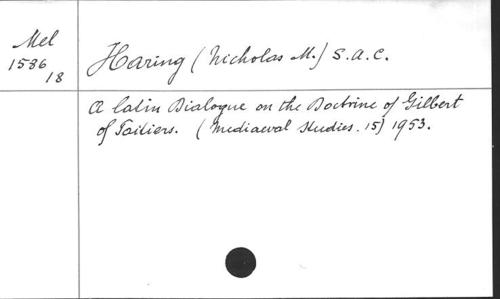 Mel
1586
18
Haring (Nicholas M.) S.A.C.
A Latin Dialogue on the Doctrine of Gilbert
of Poitiers. (Mediaeval Studies. 15) 1953.